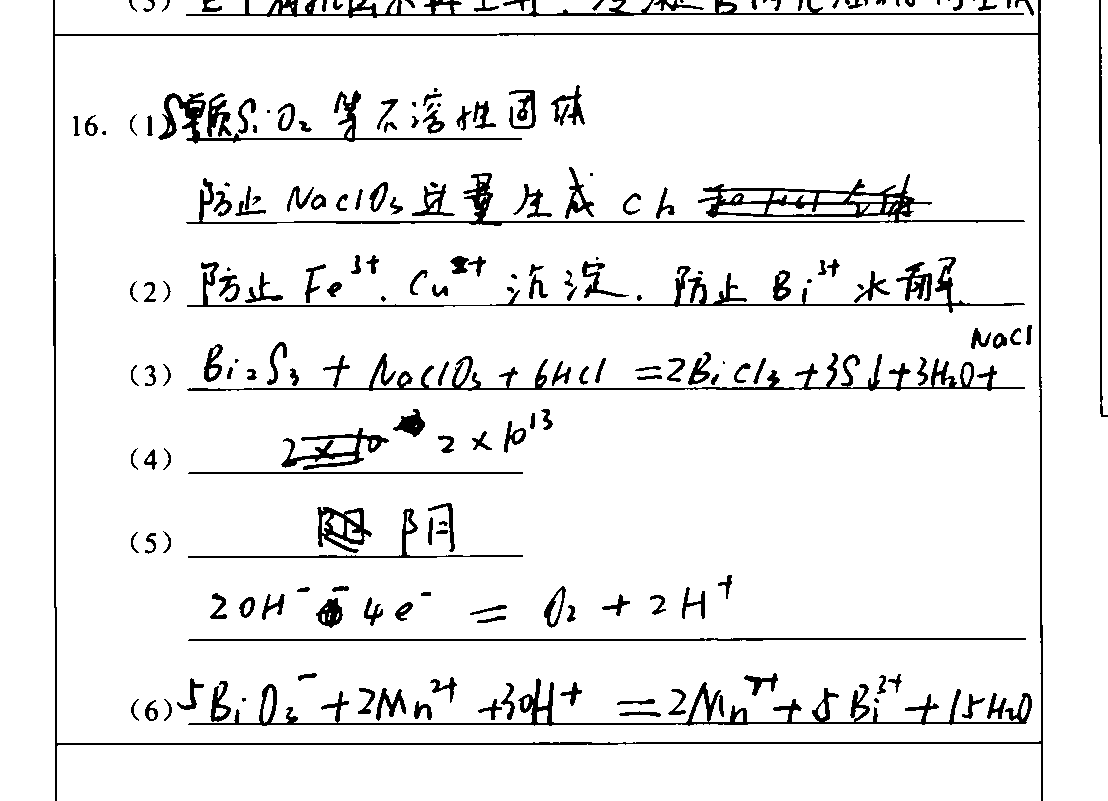 16. (1) S单质、SiO₂ 等不溶性固体
防止 NaClO₃ 过量生成 Cl₂
(2) 防止 Fe³⁺、Cu²⁺ 沉淀、防止 Bi³⁺ 水解
(3) Bi₂S₃ + NaClO₃ + 6HCl = 2BiCl₃ + 3S↓ + 3H₂O + NaCl
(4) 2×10¹³
(5) 阴
2OH⁻ - 4e⁻ = O₂ + 2H⁺
(6) 5BiO₃⁻ + 2Mn²⁺ + 30H⁺ = 2Mn⁷⁺ + 5Bi³⁺ + 15H₂O